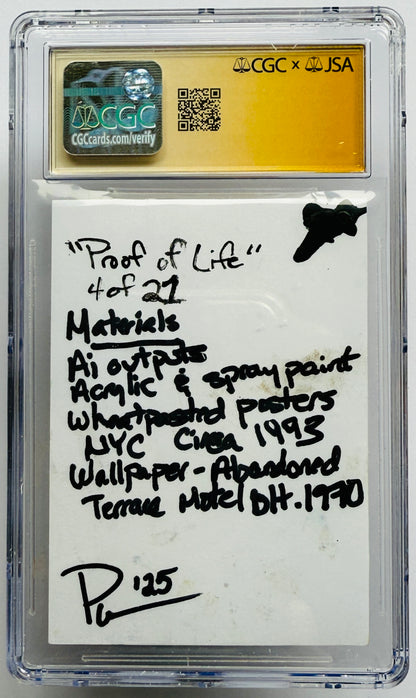 CGC
CGCcards.com/verify
CGC x JSA
"Proof of Life"
4 of 21
Materials
Ai outputs
Acrylic & spray paint
Wheatpasted posters
NYC Circa 1993
Wallpaper - Abandoned
Terrace Motel DH. 1970
'25